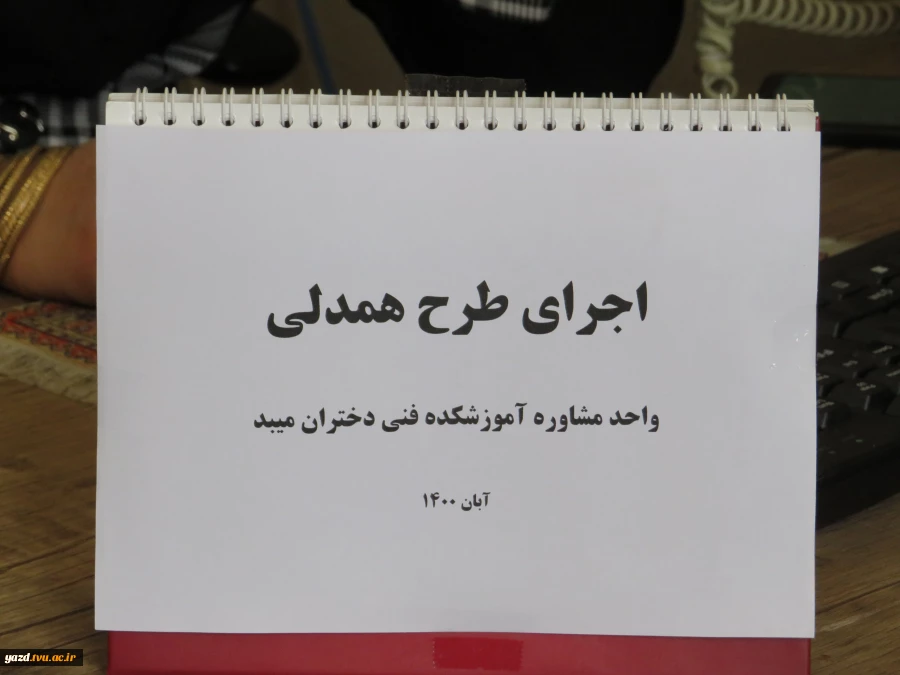 اجرای طرح همدلی
واحد مشاوره آموزشکده فنی دختران میبد
آبان ۱۴۰۰
yazd.tvu.ac.ir